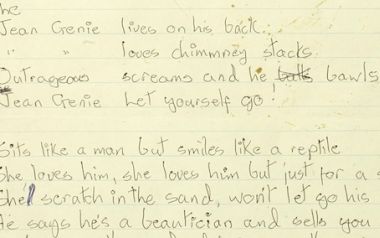 he
Jean Genie lives on his back
" " loves chimmney stacks
Outrageous screams and he bawls
Jean Genie Let yourself go!
Sits like a man but smiles like a reptile
She loves him, she loves him but just for a s
She'll scratch in the sand, won't let go his
He says he's a beautician and sells you